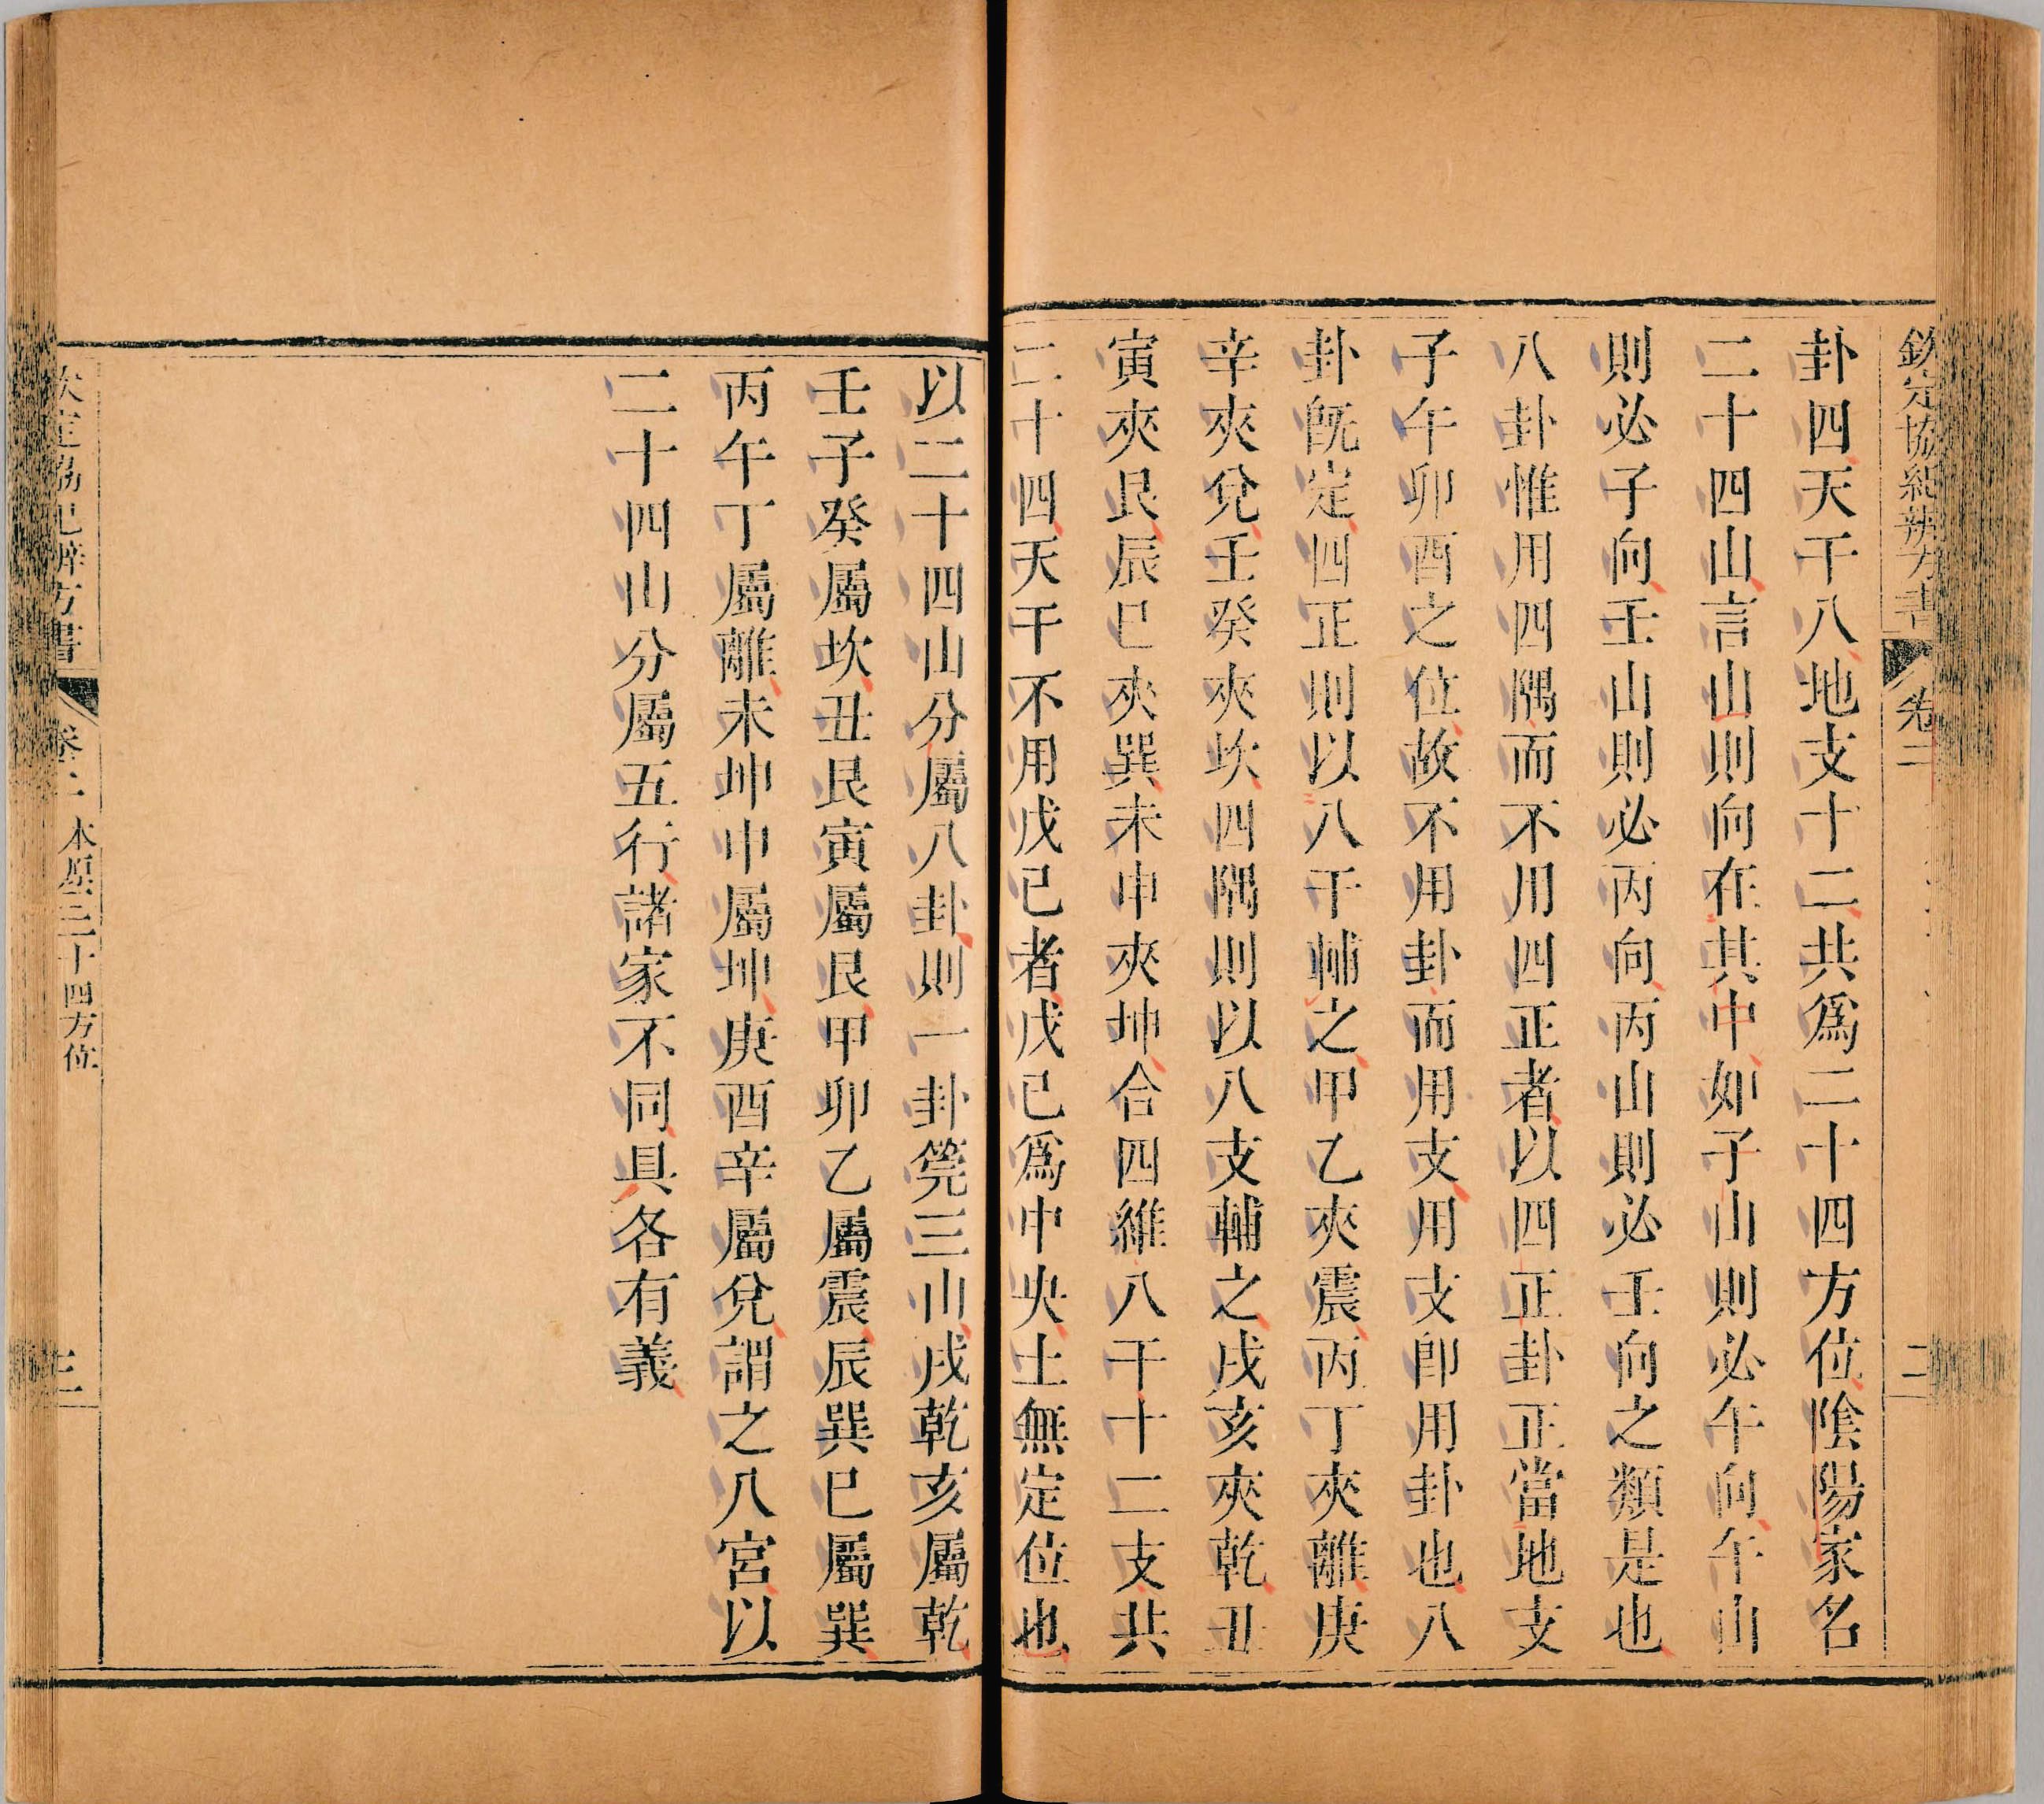 欽定協紀辨方書 卷二 二
卦四天干八地支十二共爲二十四方位陰陽家名
二十四山言山則向在其中如子山則必午向午山
則必子向壬山則必丙向丙山則必壬向之類是也
八卦惟用四隅而不用四正者以四正卦正當地支
子午卯酉之位故不用卦而用支用支即用卦也八
卦旣定四正則以八干輔之甲乙夾震丙丁夾離庚
辛夾兌壬癸夾坎四隅則以八支輔之戌亥夾乾丑
寅夾艮辰巳夾巽未申夾坤合四維八干十二支共
二十四天干不用戊己者戊己爲中央土無定位也
以二十四山分屬八卦則一卦筦三山戌乾亥屬乾
壬子癸屬坎丑艮寅屬艮甲卯乙屬震辰巽巳屬巽
丙午丁屬離未坤申屬坤庚酉辛屬兌謂之八宮以
二十四山分屬五行諸家不同具各有義
欽定協紀辨方書 卷二 本原二二十四方位 三